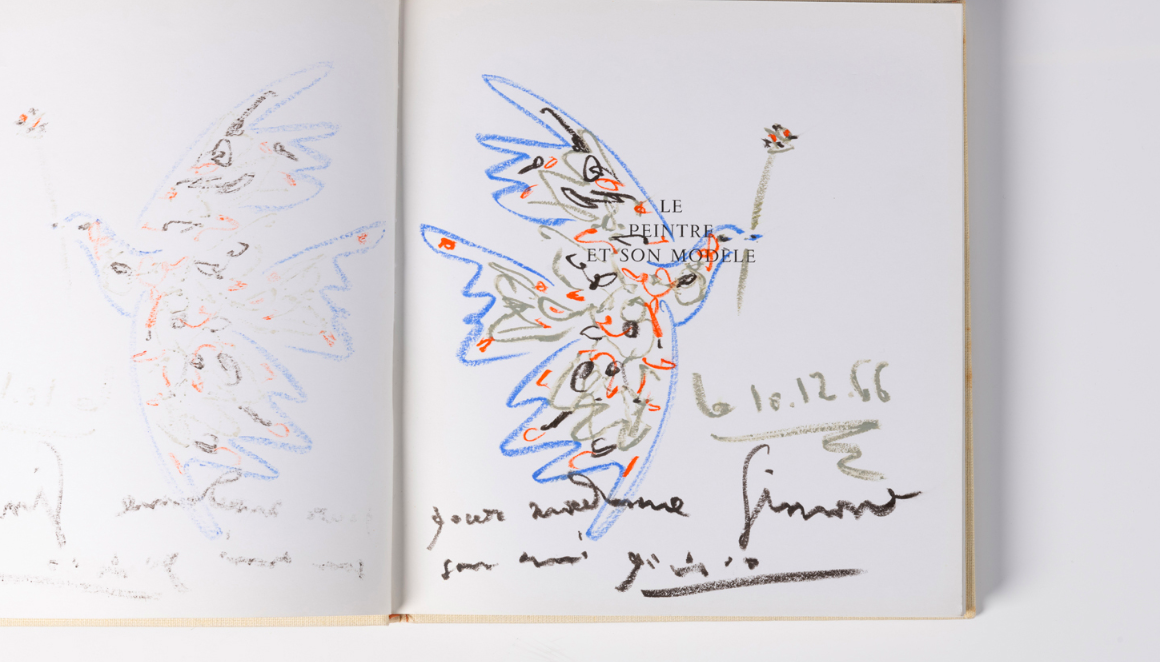 LE
PEINTRE
ET SON MODÈLE
le 10.12.66
pour madame Simone
son ami Picasso